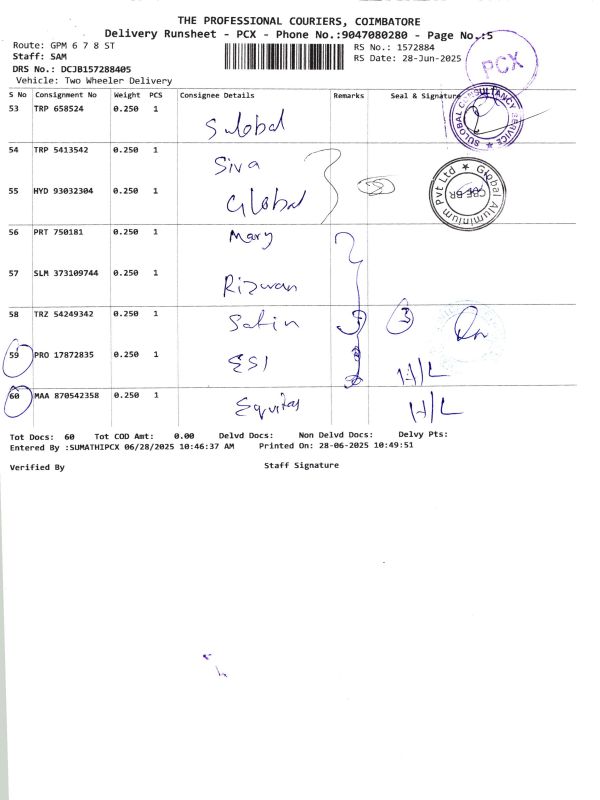 THE PROFESSIONAL COURIERS, COIMBATORE
Delivery Runsheet - PCX - Phone No.:9047080280 - Page No.:5
Route: GPM 6 7 8 ST
RS No.: 1572884
Staff: SAM
RS Date: 28-Jun-2025
PCX
DRS No.: DCJB157288405
Vehicle: Two Wheeler Delivery
S No Consignment No Weight PCS Consignee Details Remarks Seal & Signature
53 TRP 658524 0.250 1
Sulobal
SULOBAL CONSULTANCY SERVICE
54 TRP 5413542 0.250 1
Siva
55 HYD 93032304 0.250 1
Global
Global Aluminium Pvt Ltd
CBE-BR
56 PRT 750181 0.250 1
Mary
57 SLM 373109744 0.250 1
Rizwan
58 TRZ 54249342 0.250 1
Satin
3
59 PRO 17872835 0.250 1
ESI
H/L
60 MAA 870542358 0.250 1
Equitas
H/L
Tot Docs: 60 Tot COD Amt: 0.00 Delvd Docs: Non Delvd Docs: Delvy Pts:
Entered By :SUMATHIPCX 06/28/2025 10:46:37 AM Printed On: 28-06-2025 10:49:51
Verified By
Staff Signature